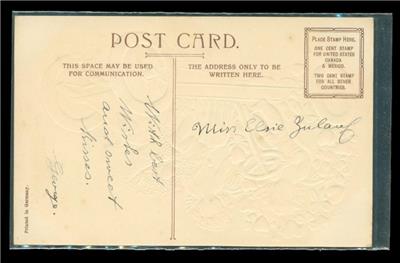 POST CARD.
THIS SPACE MAY BE USED
FOR COMMUNICATION.
THE ADDRESS ONLY TO BE
WRITTEN HERE.
PLACE STAMP HERE.
ONE CENT STAMP
FOR UNITED STATES
CANADA
& MEXICO.
TWO CENT STAMP
FOR ALL OTHER
COUNTRIES.
With best
Wishes
and sweet
kisses.
George.
Miss
Printed in Germany.